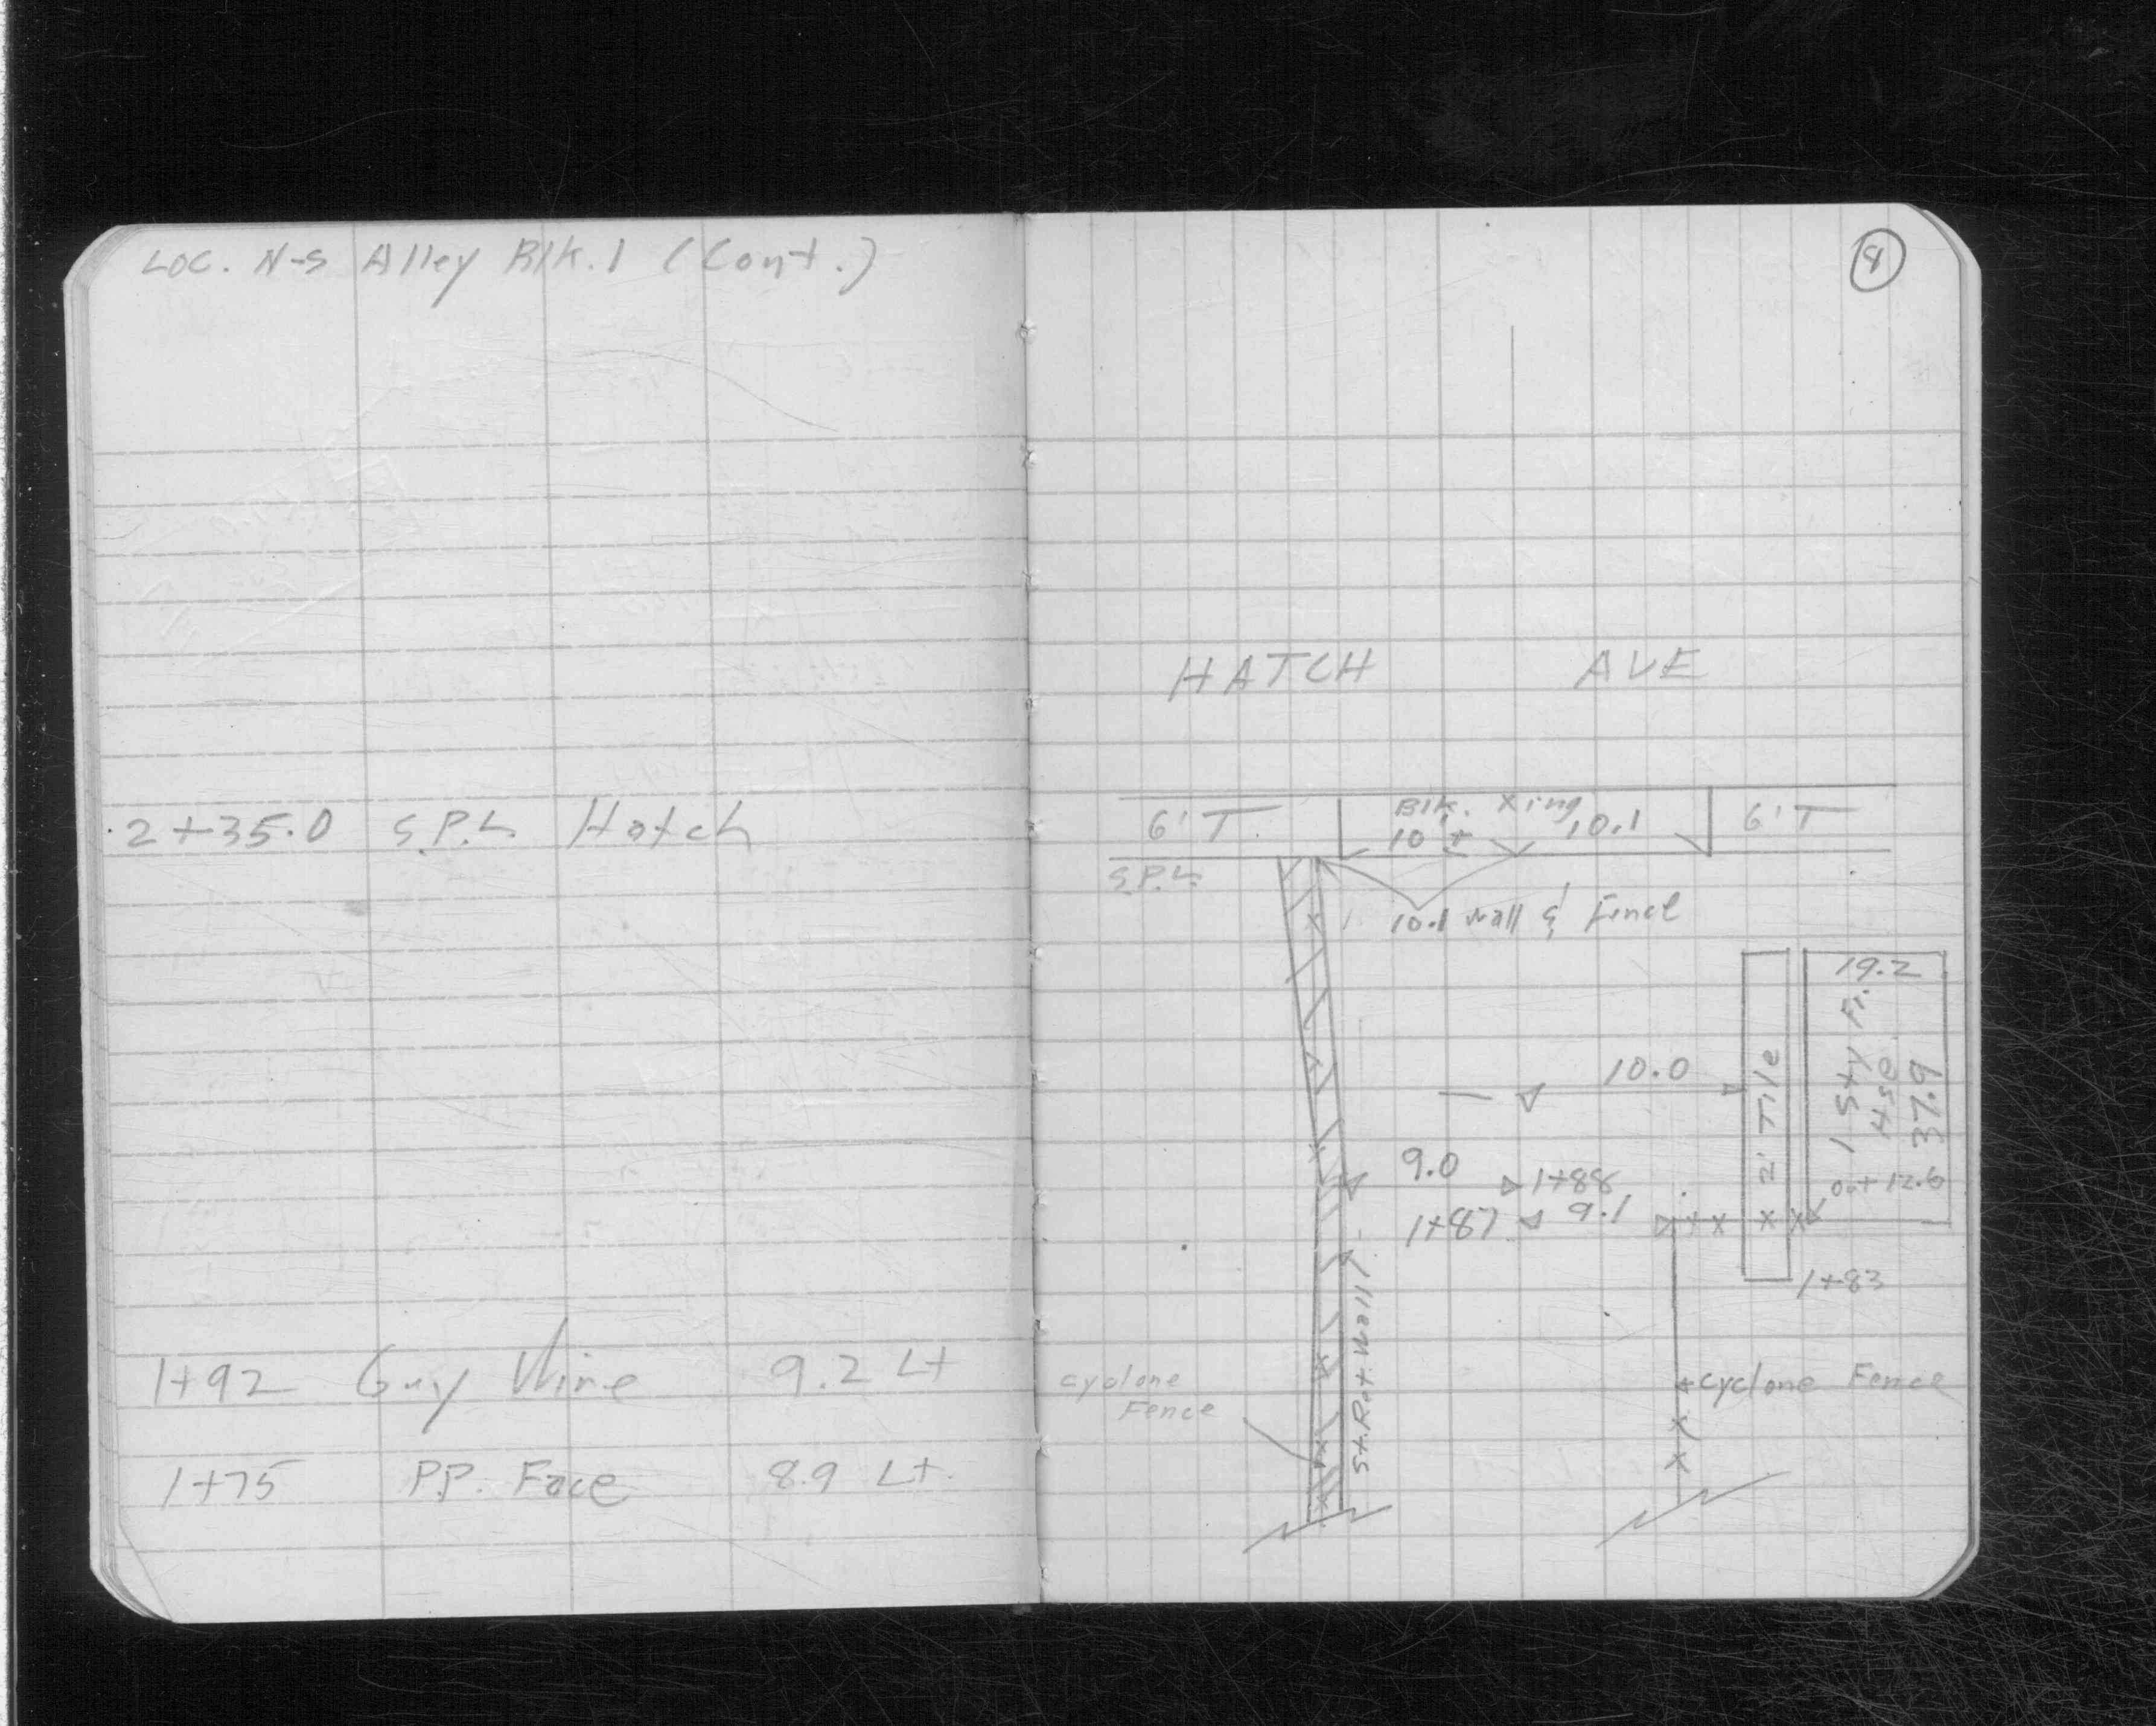 Loc. N-S Alley Blk. 1 (Cont.)
8
HATCH AVE
2+35.0 S.P.L Hatch
6' T. Blk. Xing 6' T
10'± 10.1
S.P.L.
10.1 Wall & Fence
19.2
1 Sty Fr.
Hse.
37.9
out 12.6
2' Tile
10.0
9.0 1+88
1+87 9.1
1+83
St. Ret. Wall
1+92 Guy Wire 9.2 Lt
cyclone
Fence
cyclone Fence
1+75 P.P. Face 8.9 Lt.